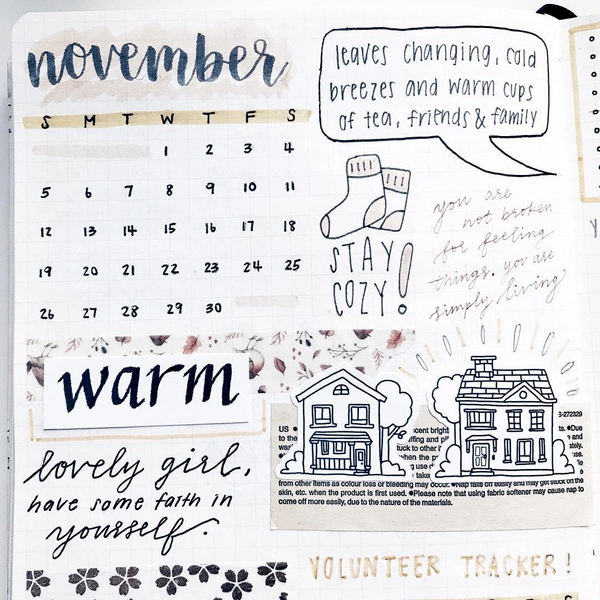 november
leaves changing, cold
breezes and warm cups
of tea, friends & family
S M T W T F S
1 2 3 4
5 6 7 8 9 10 11
12 13 14 15 16 17 18
19 20 21 22 23 24 25
26 27 28 29 30
STAY
COZY!
you are
not broken
for feeling
things. you are
simply living
warm
lovely girl,
have some faith in
yourself.
US
to the
scent bright
S-272329
ts. ●Due
and
from other items as colour loss or bleeding may occur. ●Nap falls off easily and may get stuck on the
skin, etc. when the product is first used. ●Please note that using fabric softener may cause nap to
come off more easily, due to the nature of the materials.
VOLUNTEER TRACKER!